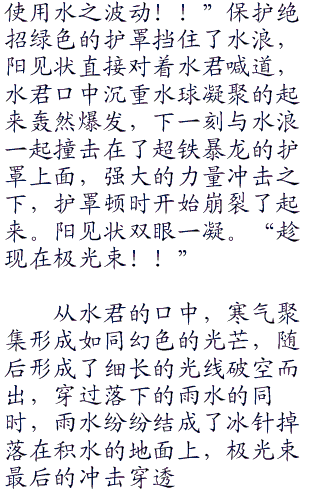 使用水之波动！！”保护绝
招绿色的护罩挡住了水浪，
阳见状直接对着水君喊道，
水君口中沉重水球凝聚的起
来轰然爆发，下一刻与水浪
一起撞击在了超铁暴龙的护
罩上面，强大的力量冲击之
下，护罩顿时开始崩裂了起
来。阳见状双眼一凝。“趁
现在极光束！！”
从水君的口中，寒气聚
集形成如同幻色的光芒，随
后形成了细长的光线破空而
出，穿过落下的雨水的同
时，雨水纷纷结成了冰针掉
落在积水的地面上，极光束
最后的冲击穿透